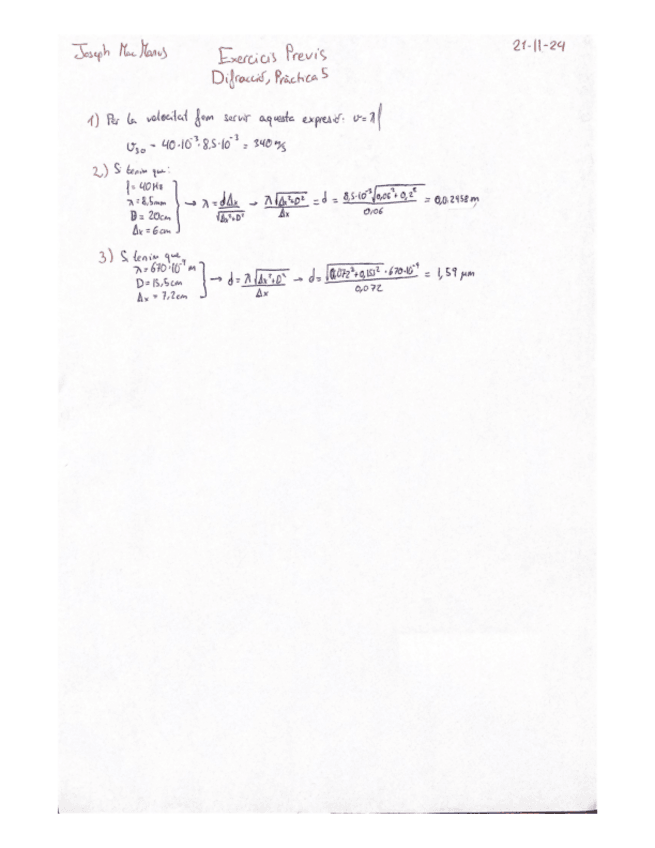 Joseph Mac Manus
21-11-24
Exercicis Previs
Difracció, Pràctica 5
1) Per la velocitat fem servir aquesta expresió: v=λf
v_so = 40·10^3·8,5·10^-3 = 340 m/s
2) Si tenim que:
f=40Hz
λ=8,5mm
D=20cm
Δx=6cm
→ λ = dΔx/√(Δx²+D²) → λ√(Δx²+D²)/Δx = d = 8,5·10^-3 √(0,06²+0,2²)/0,06 = 0,02958 m
3) Si tenim que
λ=670·10^-9 m
D=13,5cm
Δx=7,2cm
→ d = λ√(Δx²+D²)/Δx → d = √(0,072²+0,153²)·670·10^-9/0,072 = 1,59 μm